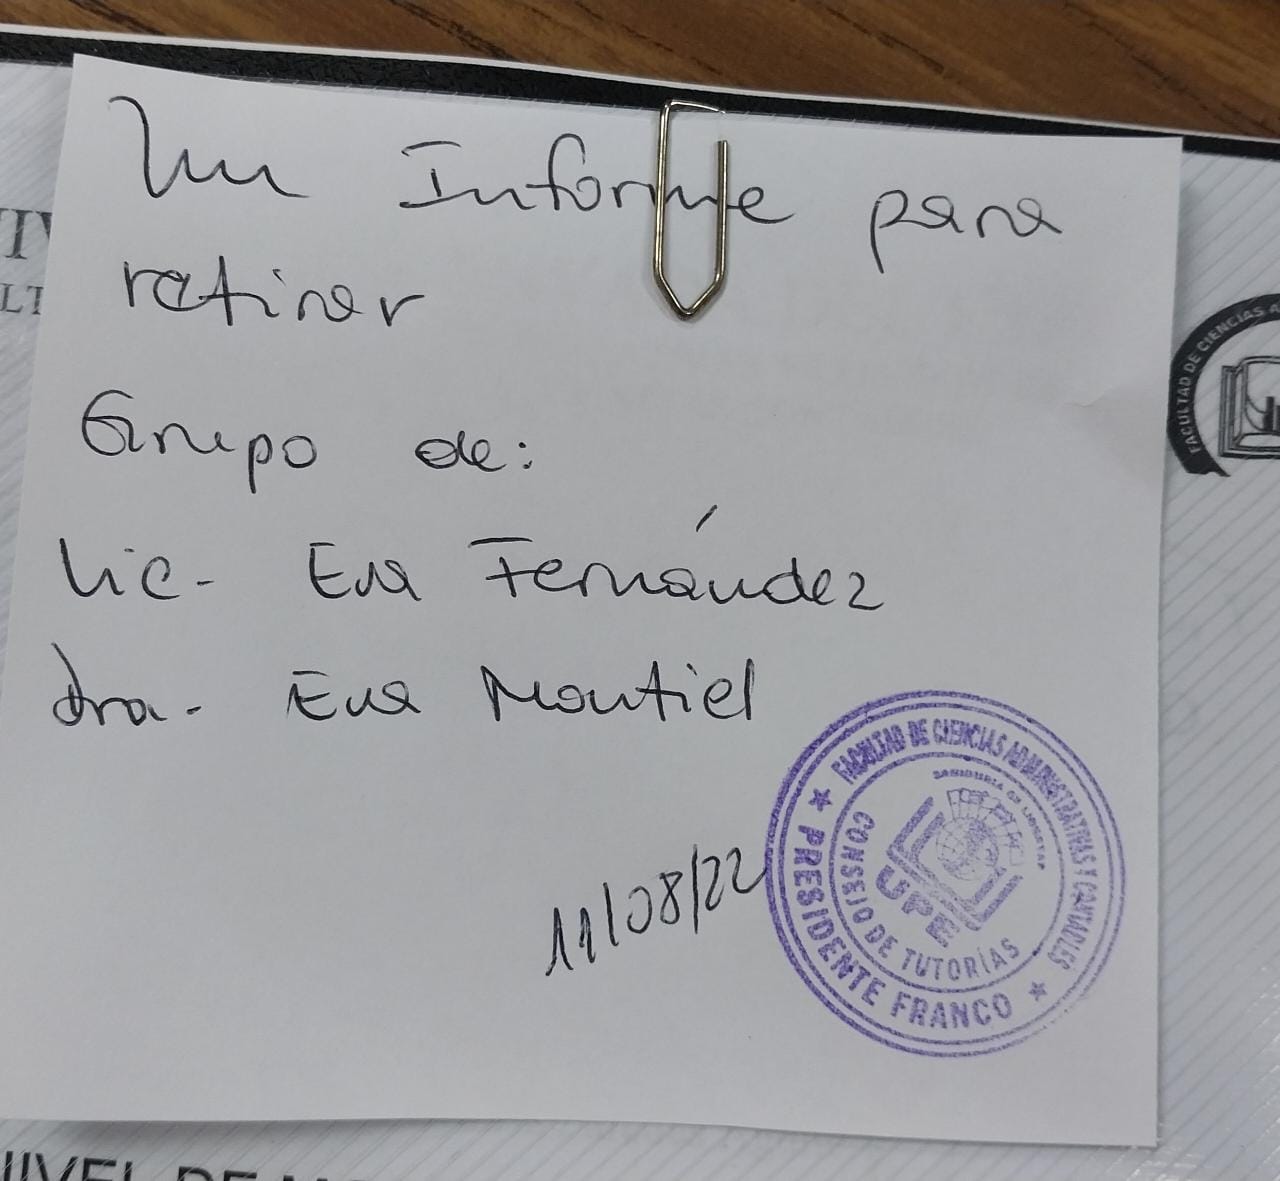 Un Informe para
retirar
Grupo de:
Lic- Eva Fernández
dra- Eva Montiel
11/08/22
FACULTAD DE CIENCIAS ADMINISTRATIVAS Y CONTABLES
★ PRESIDENTE FRANCO ★
CONSEJO DE TUTORÍAS
SABIDURIA ES LIBERTAD
UPE
FACULTAD DE CIENCIAS A
NIVEL DE